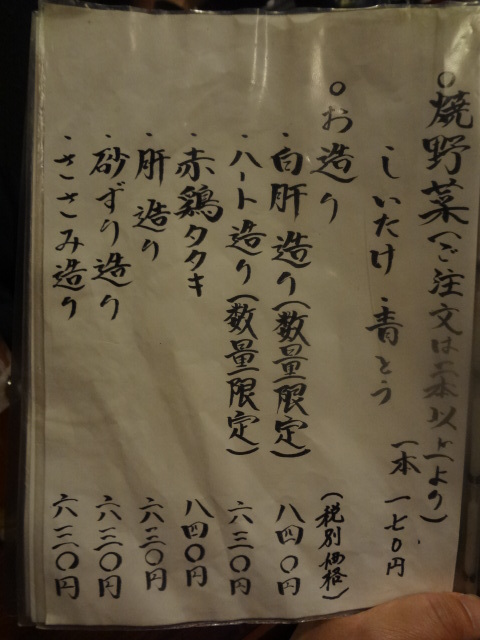 ○焼野菜(ご注文は二本以上より)
しいたけ・青とう 一本 一七〇円
○お造り (税別価格)
・白肝造り(数量限定) 八四〇円
・ハート造り(数量限定) 六三〇円
・赤鶏タタキ 八四〇円
・肝造り 六三〇円
・砂ずり造り 六三〇円
・ささみ造り 六三〇円